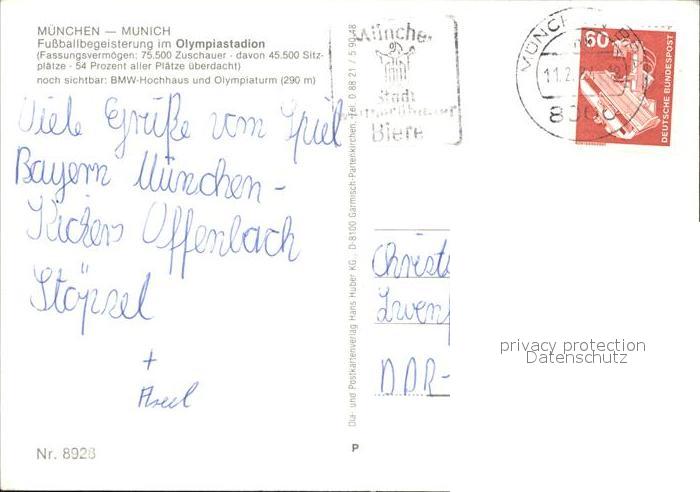 MÜNCHEN — MUNICH
Fußballbegeisterung im Olympiastadion
(Fassungsvermögen: 75.500 Zuschauer - davon 45.500 Sitz-
plätze - 54 Prozent aller Plätze überdacht)
noch sichtbar: BMW-Hochhaus und Olympiaturm (290 m)
Viele Grüße vom Spiel
Bayern München -
Kickers Offenbach
Stöpsel
+
Axel
Nr. 8928
Dia- und Postkartenverlag Hans Huber KG., D-8100 Garmisch-Partenkirchen, Tel. 0 88 21 / 5 90 48
P
Münchner
Stadt
Biere
MÜNCH
11.2.
8000
60
DEUTSCHE BUNDESPOST
Christ
DDR-
privacy protection
Datenschutz